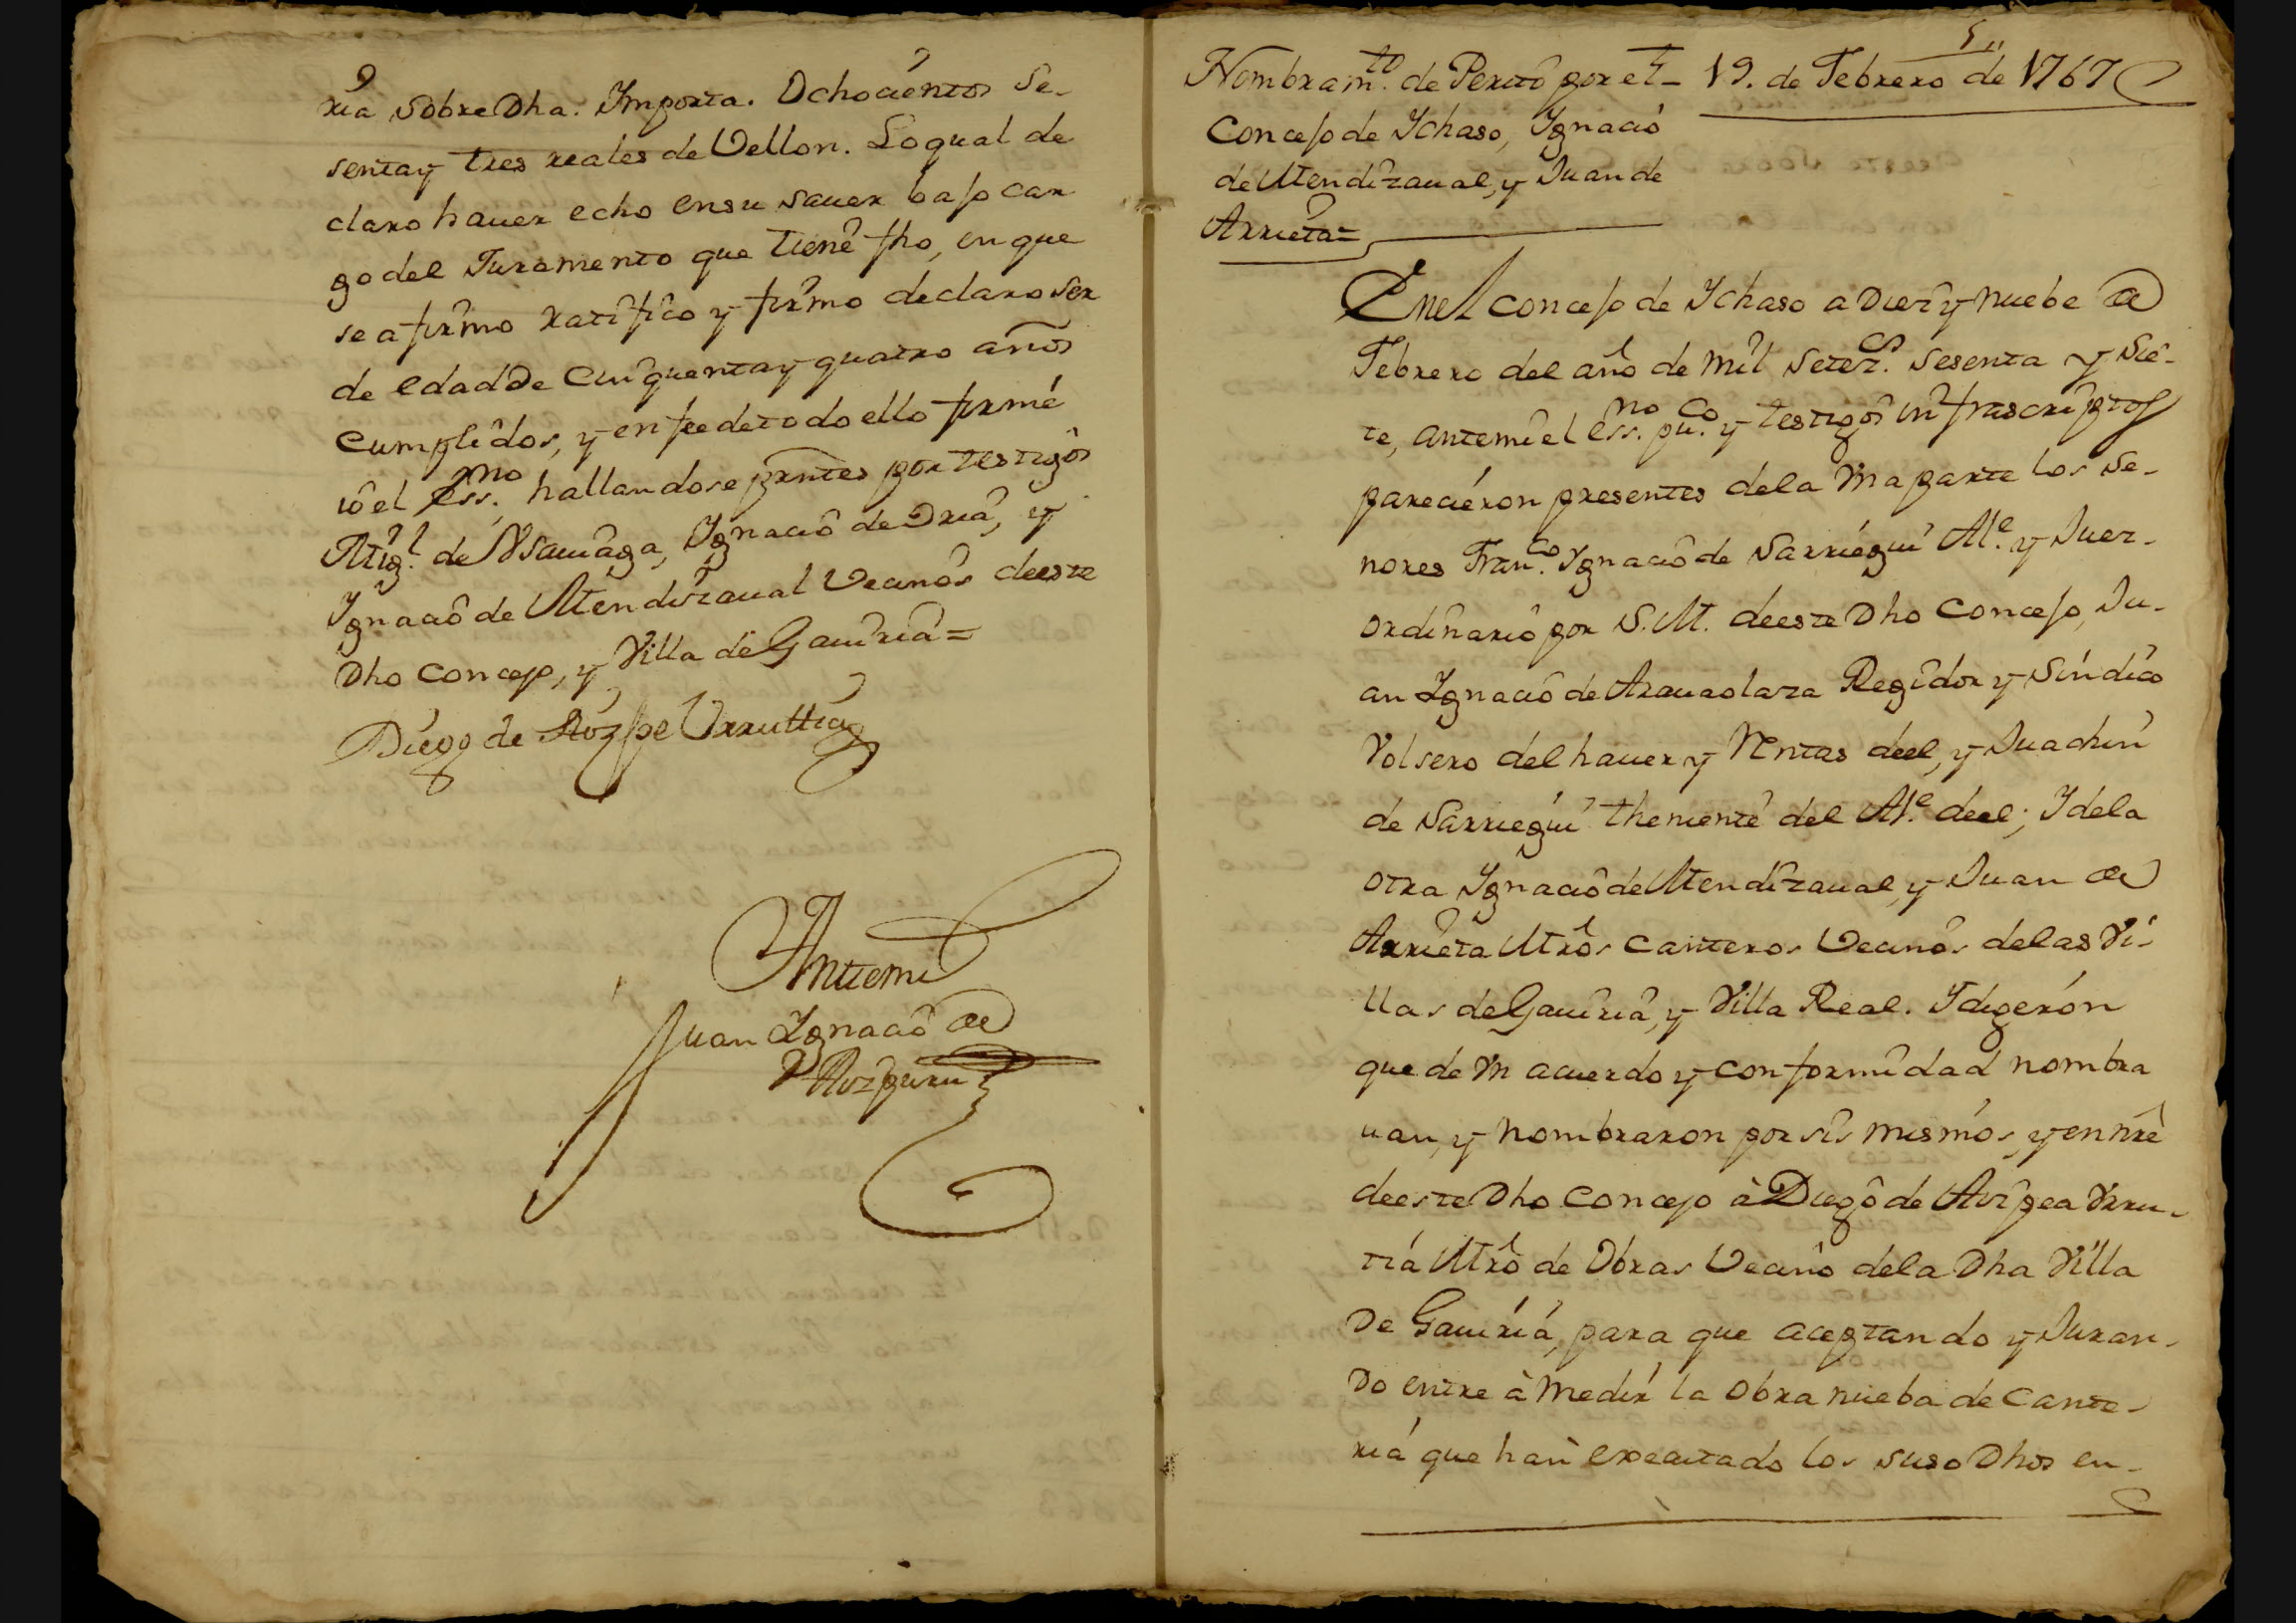 ria sobre Dha. Importa. Ochocientos se-
senta y tres reales de Vellon. Lo qual de
claro hauer echo en su sauer bajo car
go del Juramento que tiene fho, en que
se afirmo ratifico y firmo declaro ser
de edad de Cinquenta y quatro años
cumplidos, y en fee de todo ello firmé
io el Ess.no hallandose prntes por testigos
Mig.l de Ysauiaga, Ignacio de Oria, y
Ignacio de Mendizaual Vecinos de este
Dho Concejo, y Villa de Gauiria=
Diego de Urruttia
Antemi
Juan Ignacio de
5,,
Nombram.to de Perito por el- 19. de Febrero de 1767
Concejo de Ichaso, Ignacio
de Mendizaual, y Juan de
Arrieta=
En el concejo de Ichaso a Diez y nuebe de
Febrero del año de mil setez.os sesenta y sie-
te, antemi el Ess.no pu.co y testigos infrascriptos
parecieron presentes de la vna parte los se-
nores Fran.co Ignacio de Sarriegui Al.e y Juez-
ordinario por S.M. de este Dho Concejo, Ju-
an Ignacio de Arauaolaza Regidor y Sindico
Volsero del hauer y Rentas deel, y Juachin
de Sarriegui theniente del Al.e deel; Y de la
otra Ignacio de Mendizaual, y Juan de
Arrieta Mrõs canteros Vecinos de las Vi-
llas de Gauiria, y Villa Real. Y digerón
que de vn acuerdo y conformidad nombra
uan, y nombraron por sis mismos, y en nre
de este Dho Concejo à Diego de Aizpea Vrru-
tiá Mrõ de Obras Vecino de la Dha Villa
De Gauiriá, para que aceptando y Juran-
do entre à medir la obra nueba de Cante-
riá que han executado los suso Dhos en-